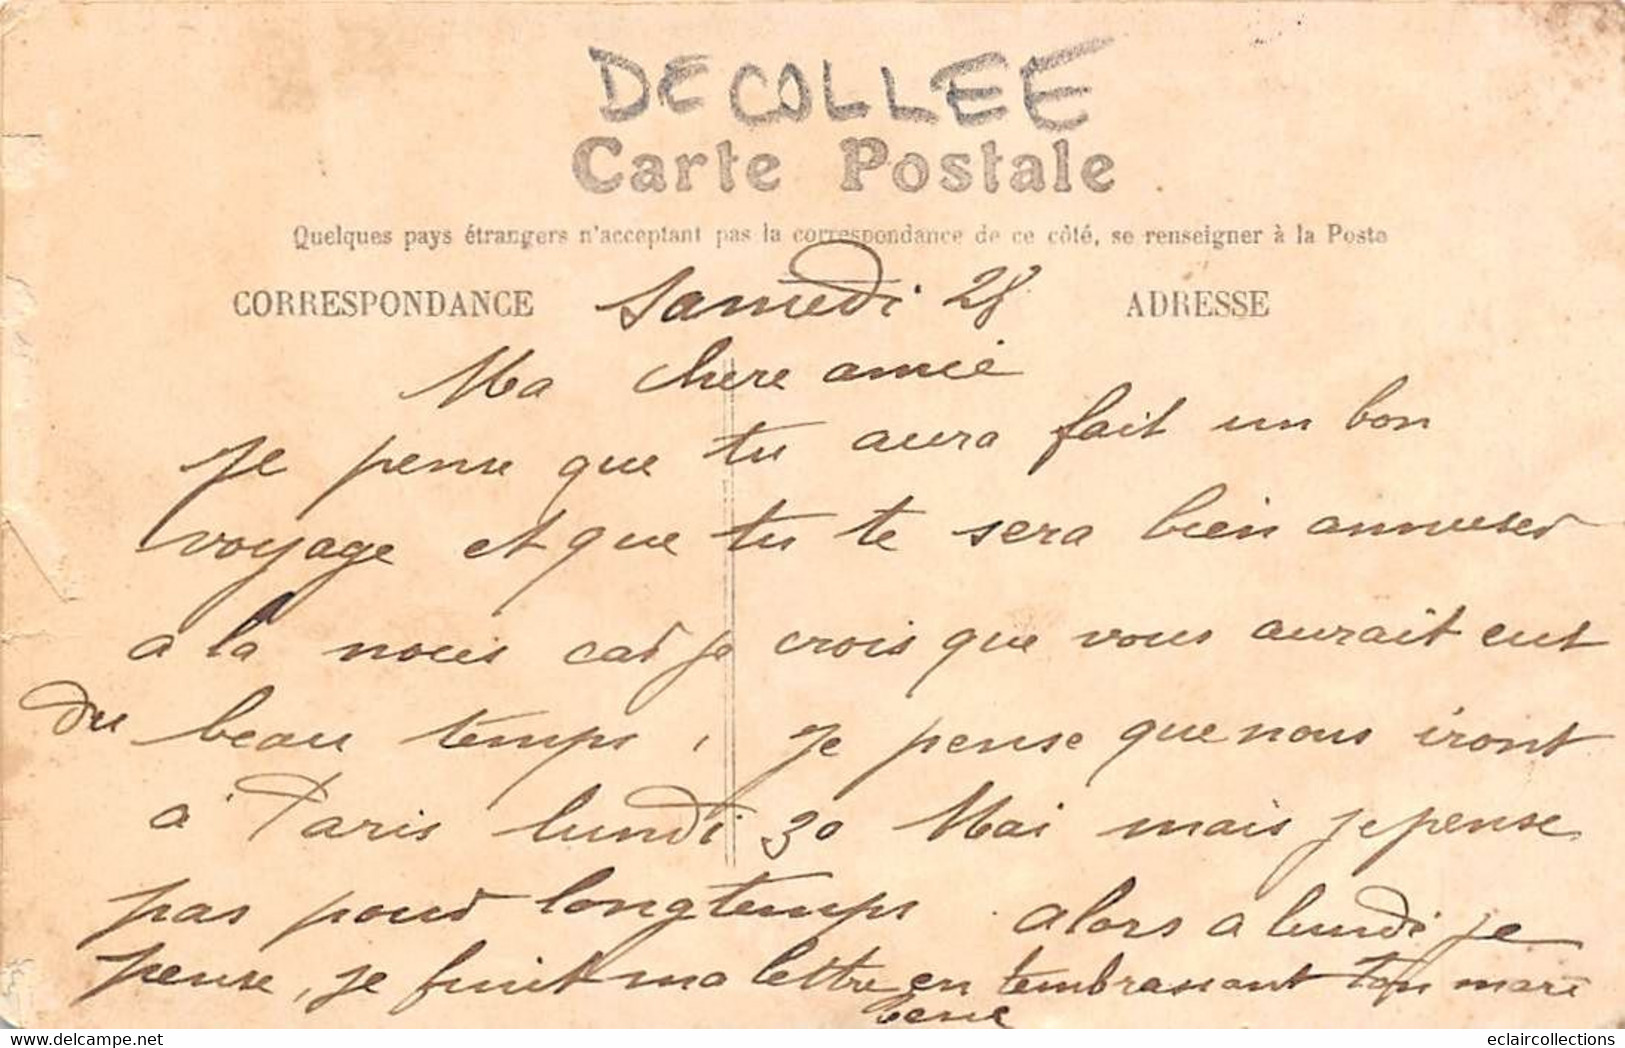 DECOLLEE
Carte Postale
Quelques pays étrangers n'acceptant pas la correspondance de ce côté, se renseigner à la Poste
CORRESPONDANCE Samedi 28 ADRESSE
Ma chere amie
je pense que tu aura fait un bon
voyage et que tu te sera bien annuser
a la nouis car je crois que vous aurait eut
du beau temps, je pense que nous iront
a Paris lundi 30 Mai mais je pense
pas pour longtemps alors a lundi je
pense, je finit ma lettre en t'embrassant ton mari
eclaircollections